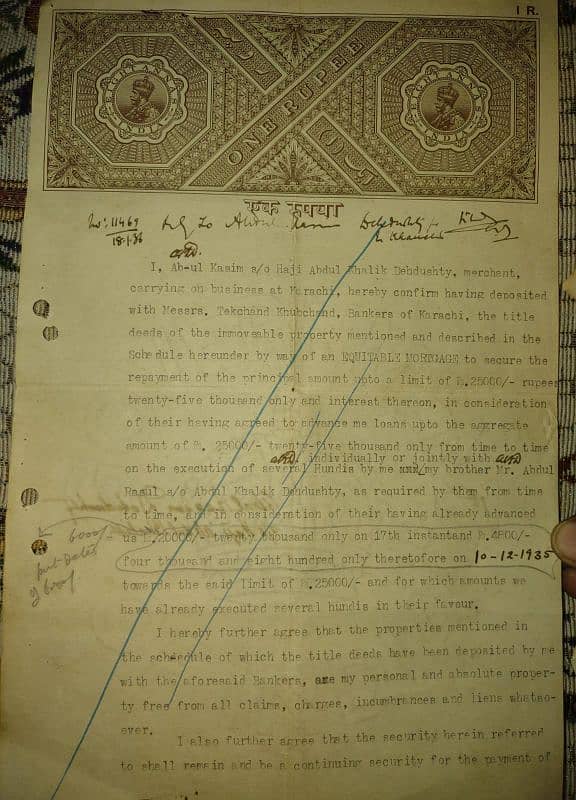 1 R.
EIGHT ANNAS
INDIA
ONE RUPEE
EIGHT ANNAS
INDIA
एक रूपया
No: 11469
18-1-36
to Abdul
I, Ab-ul Kasim s/o Haji Abdul Khalik Debdushty, merchant,
carrying on business at Karachi, hereby confirm having deposited
with Messrs. Tekchand Khubchand, Bankers of Karachi, the title
deeds of the immoveable property mentioned and described in the
Schedule hereunder by way of an EQUITABLE MORTGAGE to secure the
repayment of the principal amount upto a limit of Rs.25000/- rupees
twenty-five thousand only and interest thereon, in consideration
of their having agreed to advance me loans upto the aggregate
amount of Rs. 25000/- twenty-five thousand only from time to time
individually or jointly with
on the execution of several Hundis by me my brother Mr. Abdul
Rasul s/o Abdul Khalik Debdushty, as required by them from time
to time, and in consideration of their having already advanced
us Rs.20000/- twenty thousand only on 17th instant and Rs.4800/-
four thousand and eight hundred only theretofore on 10-12-1935
towards the said limit of Rs.25000/- and for which amounts we
have already executed several hundis in their favour.
I hereby further agree that the properties mentioned in
the schedule of which the title deeds have been deposited by me
with the aforesaid Bankers, are my personal and absolute proper-
ty free from all claims, charges, incumbrances and liens whatso-
ever.
I also further agree that the security herein referred
to shall remain and be a continuing security for the payment of